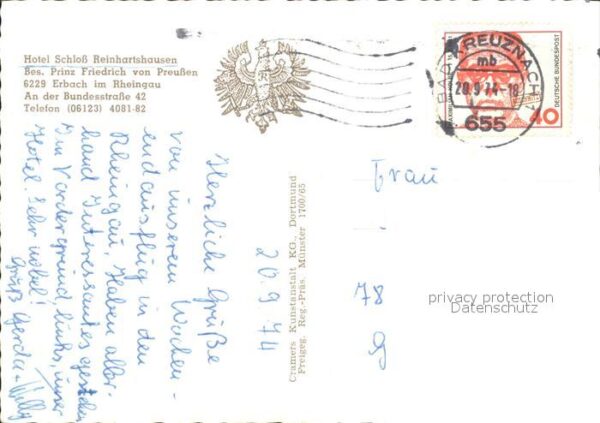 Hotel Schloß Reinhartshausen
Bes. Prinz Friedrich von Preußen
6229 Erbach im Rheingau
An der Bundesstraße 42
Telefon (06123) 4081-82
BAD KREUZNACH
mb
20.9.74-18
655
DEUTSCHE BUNDESPOST
40
20.9.74
Herzliche Grüße
von unserem Wochen-
endausflug in den
Rheingau. Haben aller-
hand Interessantes gesehen
Im Vordergrund links, unser
Hotel. Sehr nobel!
Gruß Gerda u. Willy
Cramers Kunstanstalt KG., Dortmund
Freigeg. Reg.-Präs. Münster 1700/65
Frau
78
privacy protection
Datenschutz